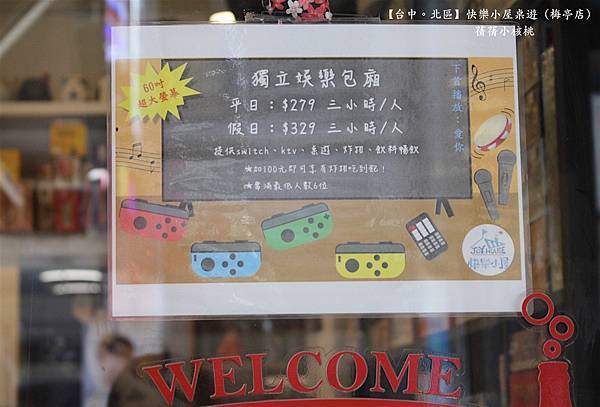 【台中。北區】快樂小屋桌遊（梅亭店）
蒨蒨小核桃
60吋
超大螢幕
獨立娛樂包廂
平日：$279 三小時/人
假日：$329 三小時/人
提供switch、ktv、桌遊、炸物、飲料暢飲
★加100元即可享有炸物吃到飽！
★需滿最低人數6位
下首播放：愛你
JOY HOUSE
快樂小屋
WELCOME